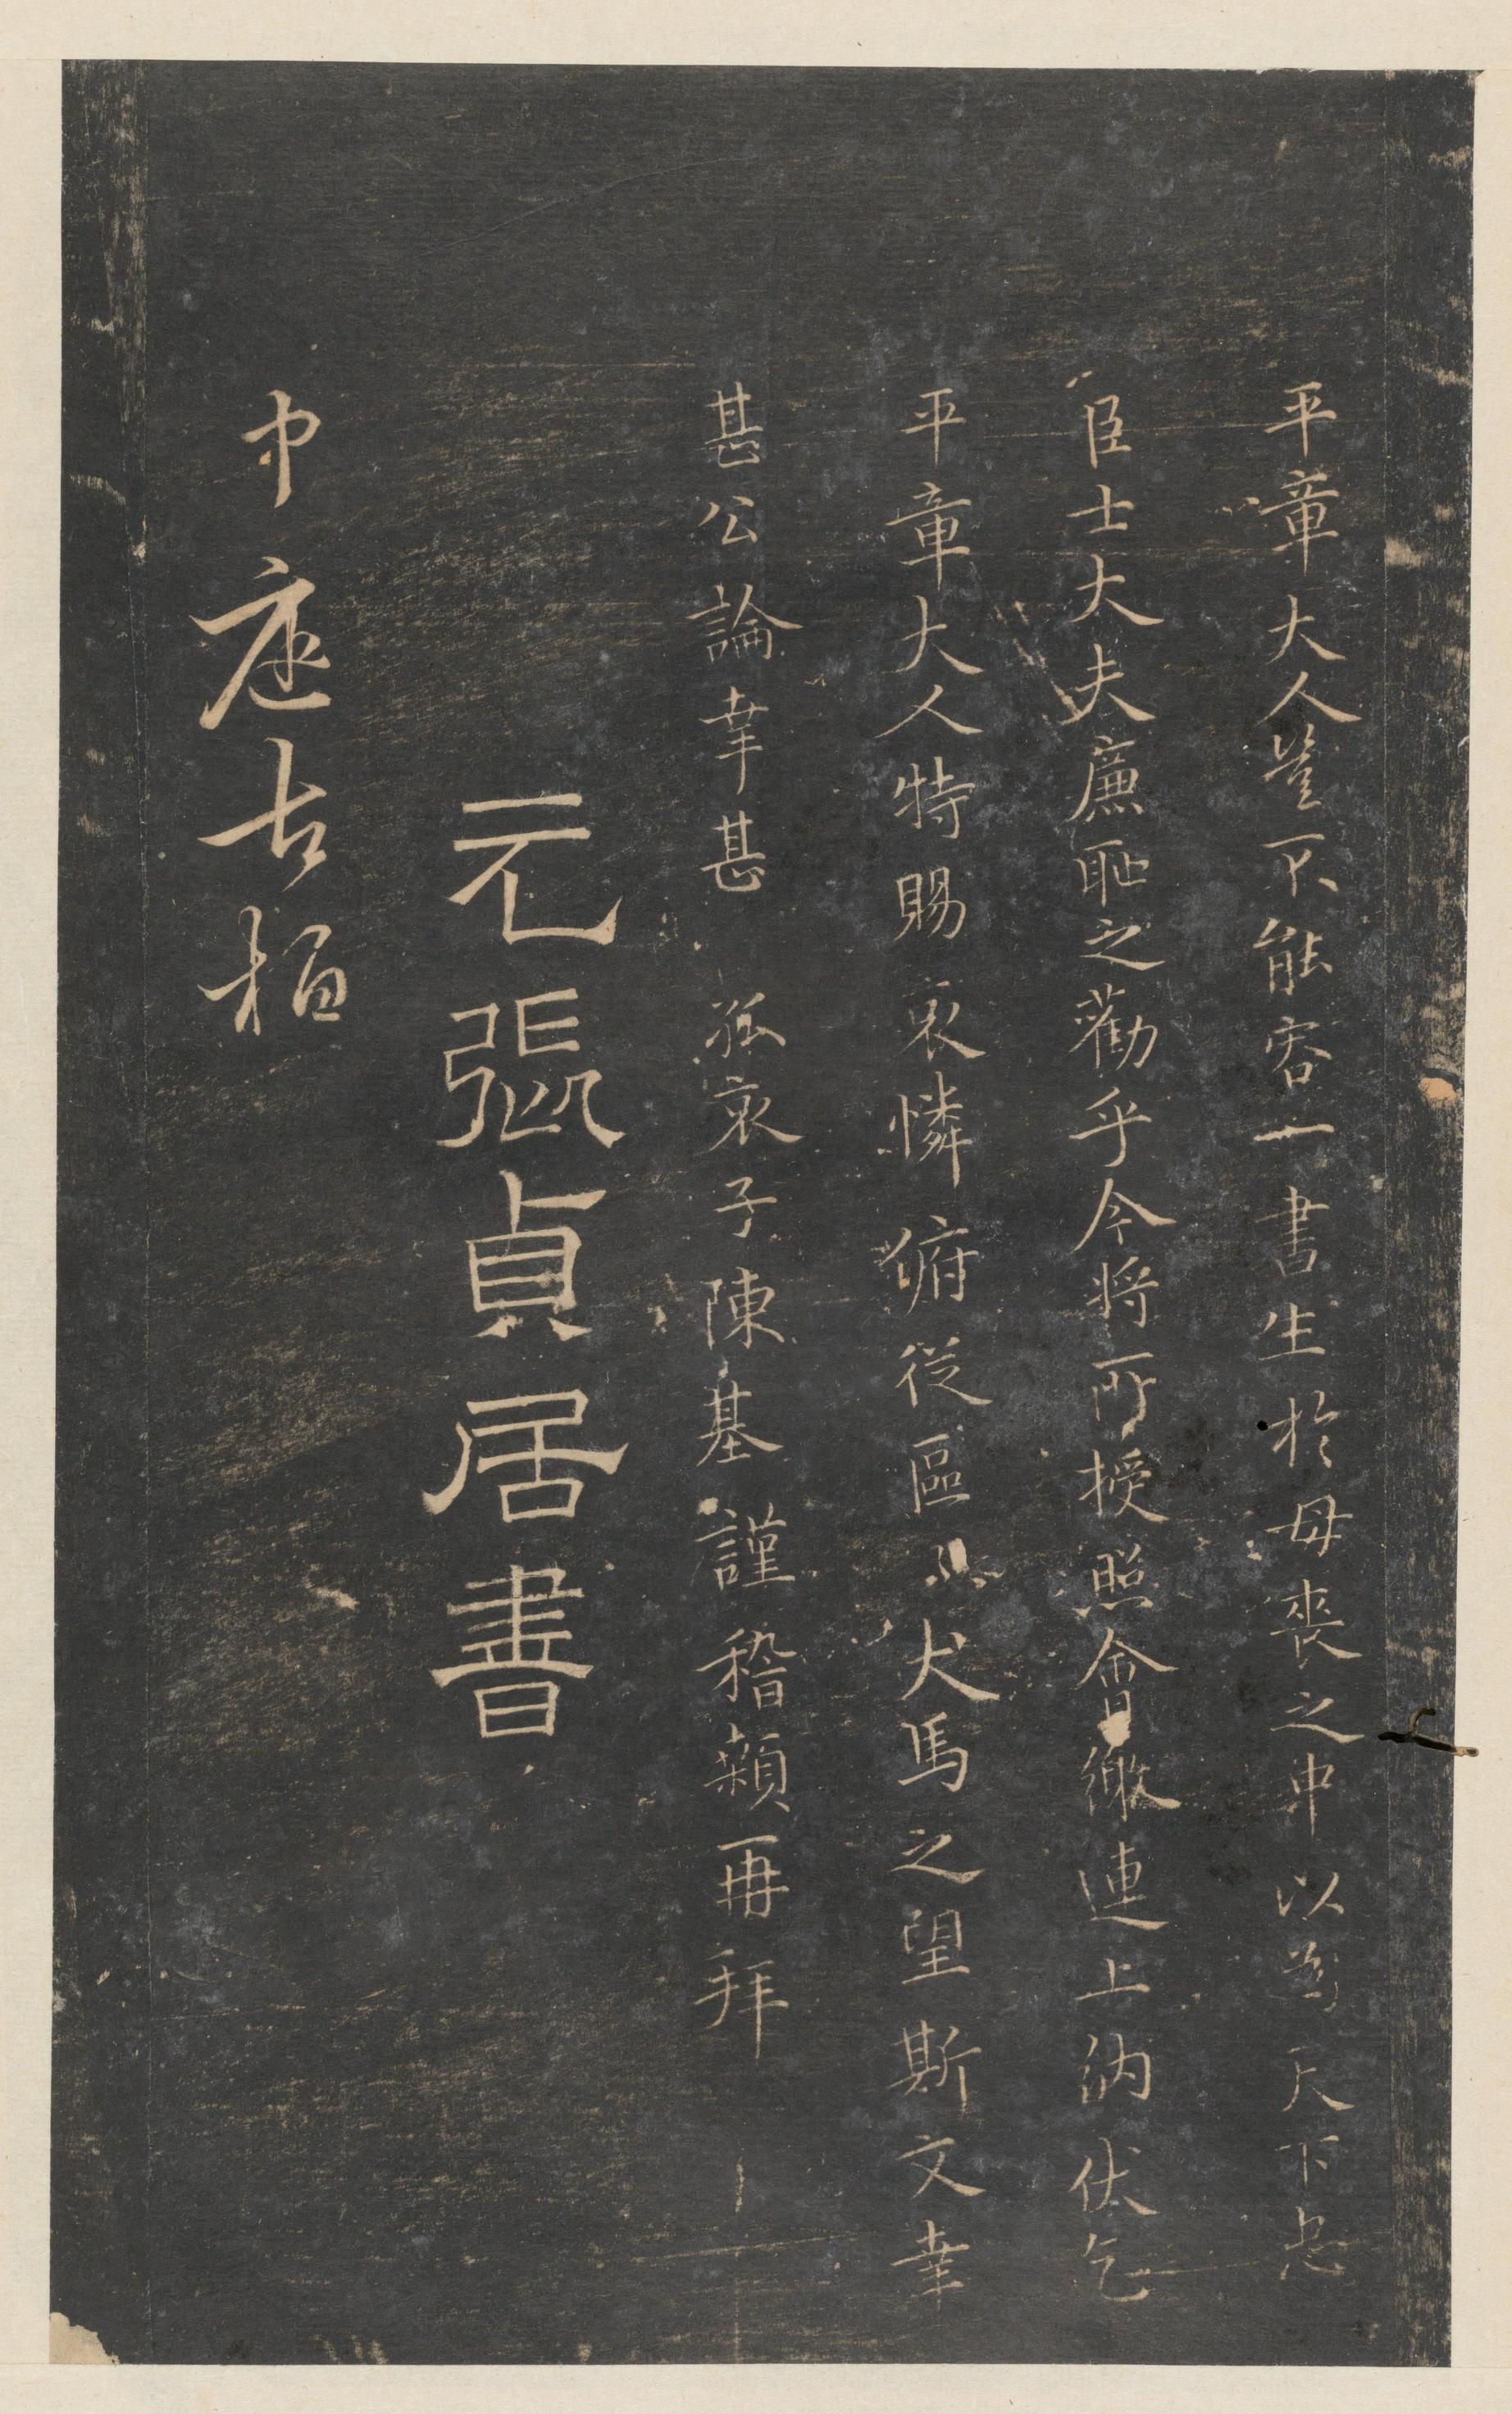 平章大人豈不能容一書生於母喪之中以為天下忠
臣士大夫廉恥之勸乎今將所授照會繳連上納伏乞
平章大人特賜哀憐俯從區〻犬馬之望斯文幸
甚公論幸甚 孤哀子陳基謹稽顙再拜
元張貞居書
中庭古柏